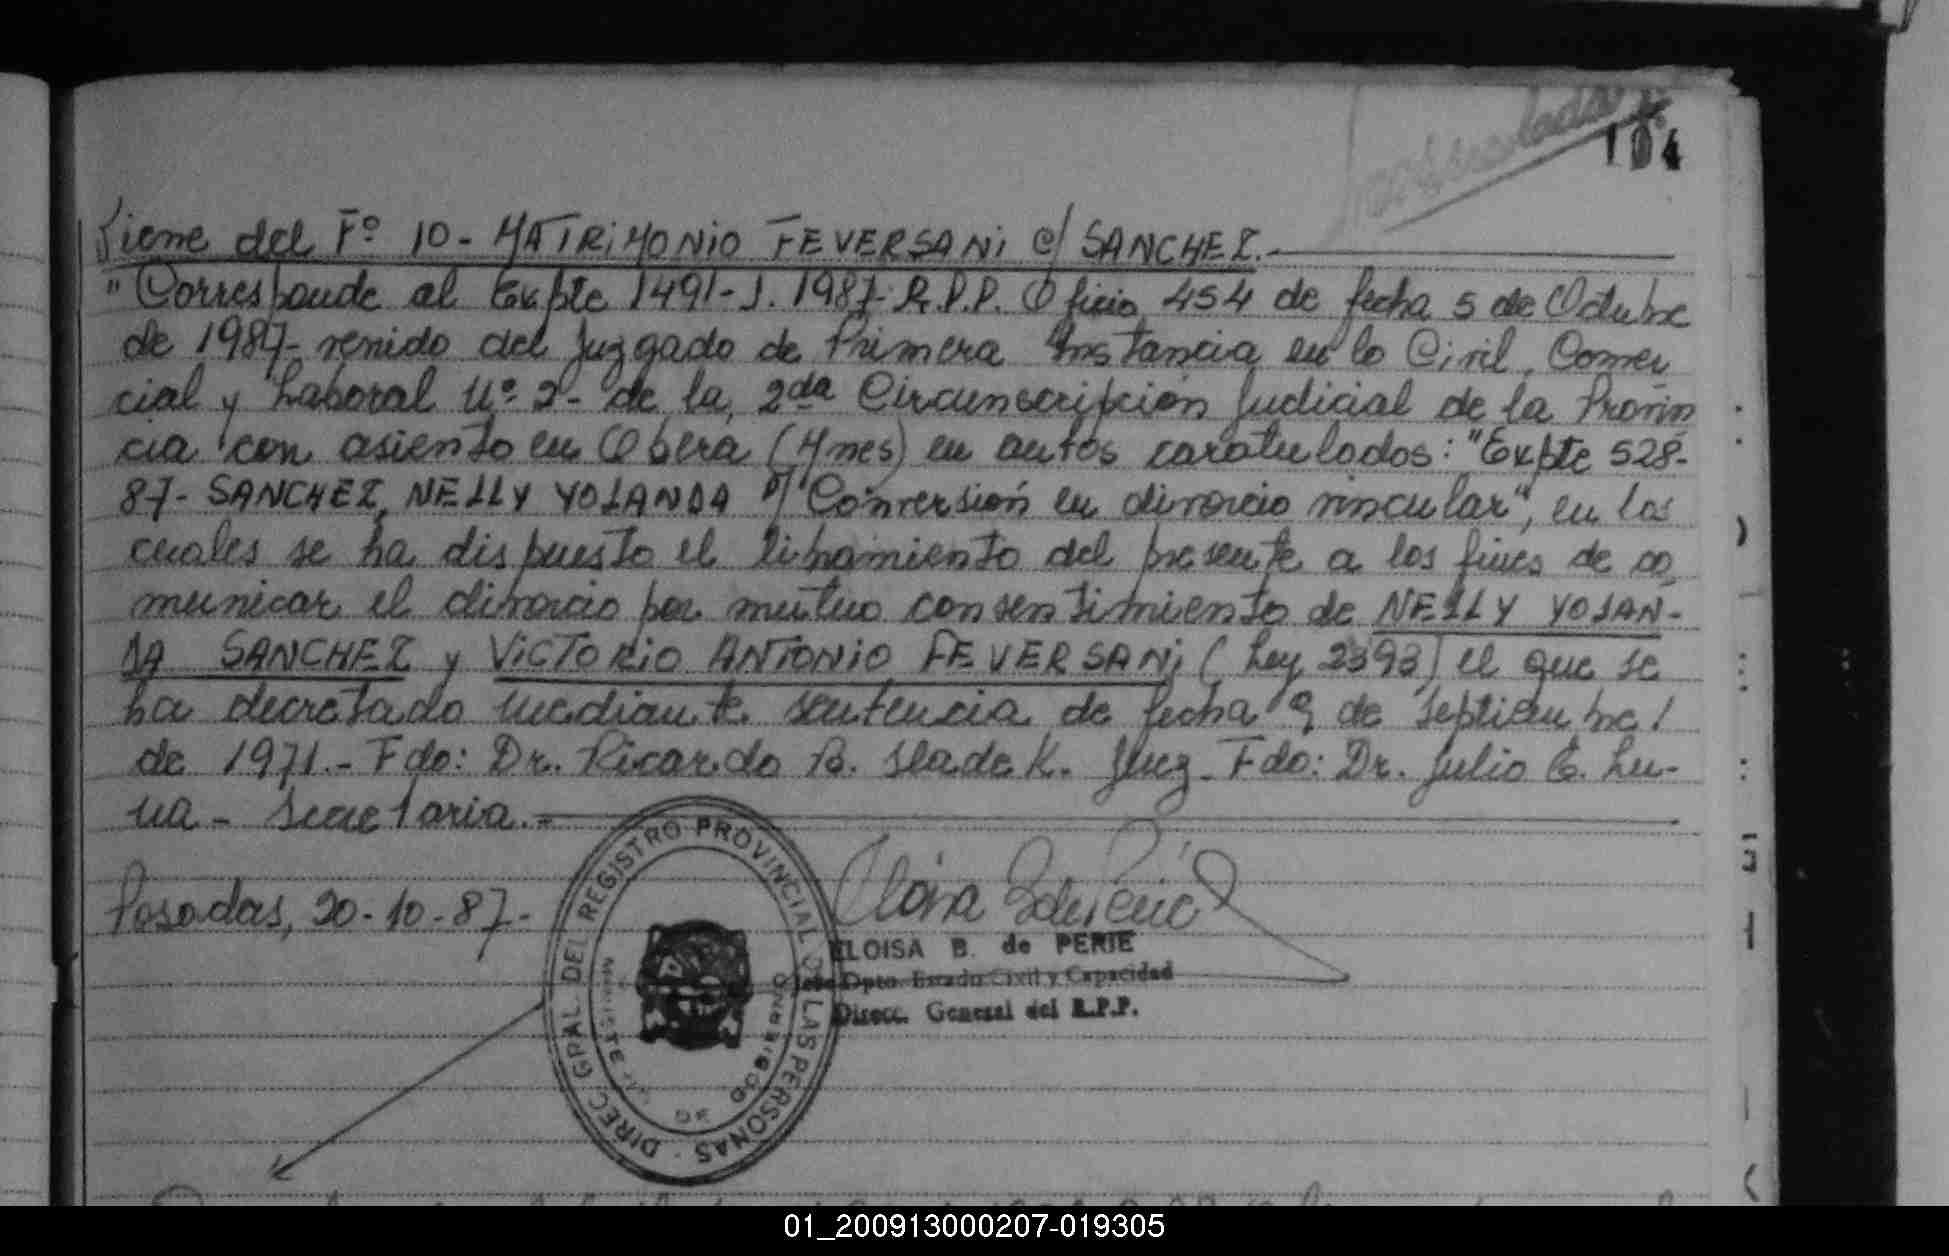 104
Viene del Fº 10- MATRIMONIO FEVERSANI c/ SANCHEZ.-
"Corresponde al Expte 1491-J. 1987- R.P.P. Oficio 454 de fecha 5 de Octubre
de 1987- venido del Juzgado de Primera Instancia en lo Civil, Comer
cial y Laboral Nº 2- de la 2da Circunscripción Judicial de la Provin
cia con asiento en Obera (Mnes) en autos caratulados: "Expte 528-
87- SANCHEZ, NELLY YOLANDA s/ Conversión en divorcio vincular", en los
cuales se ha dispuesto el libramiento del presente a los fines de co
municar el divorcio por mutuo consentimiento de NELLY YOLAN-
DA SANCHEZ y VICTORIO ANTONIO FEVERSANI (Ley 2393) el que se
ha decretado mediante sentencia de fecha 9 de septiembre
de 1971.- Fdo: Dr. Ricardo B. Sladek. Juez- Fdo: Dr. Julio E. Lu-
na - Secretaria.-
Posadas, 20-10-87-
DIREC. GRAL. DEL REGISTRO PROVINCIAL DE LAS PERSONAS
ELOISA B. de PERIE
Jefe Dpto. Estado Civil y Capacidad
Direcc. General del R.P.P.
01_200913000207-019305